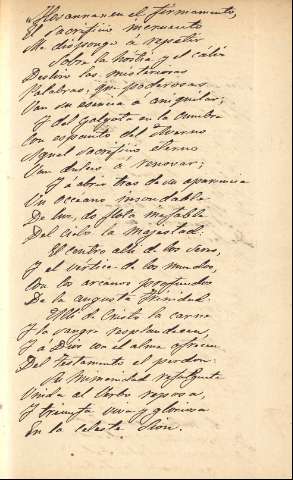 "Hosanna en el firmamento,
El sacrificio incruento
Me dispongo a repetir
Sobre la hostia y el cáliz
Destino las misteriosas
Palabras, qui poderosas
Van su esencia a aniquilar;
Y del Golgota en la cumbre
Con espanto del Averno
Aquel sacrificio eterno
Van dulces a renovar;
Y a abrir tras de su apariencia
Un oceano insondable
De luz, do flota inefable
Del cielo la majestad.
El centro allí de los seres,
Y el vértice de los mundos,
Con los arcanos profundos
De la augusta Trinidad.
Allí de Cristo la carne
Y la sangre resplandecen,
Y a Dios con el alma ofrecen
Del testamento el perdon.
Su humanidad
Unida al Verbo reposa,
Y triunfa viva y gloriosa
En la celeste Sion.